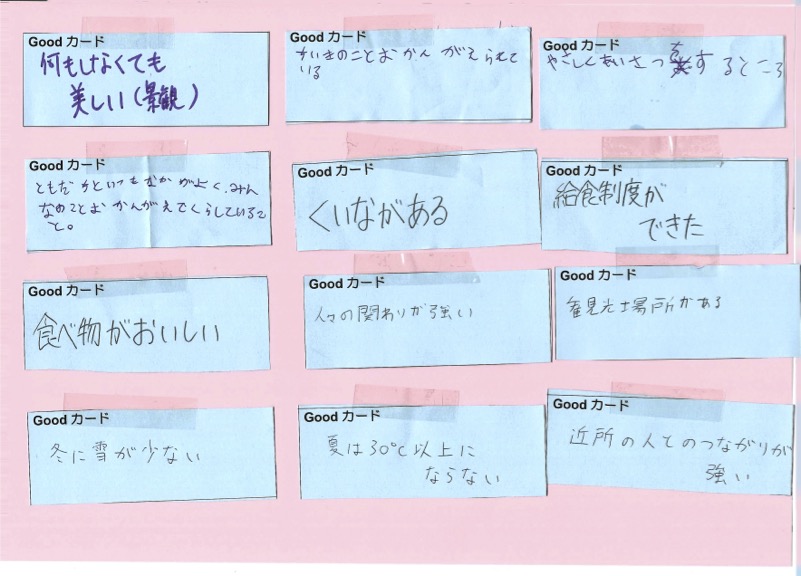 Good カード
何もしなくても
美しい(景観)
Good カード
ちいきのことおかんがえられて
いる
Good カード
やさしくあいさつをするところ
Good カード
ともだちといつもなかがよく、みん
なのことおかんがえてくらしているこ
と。
Good カード
くいながある
Good カード
給食制度が
できた
Good カード
食べ物がおいしい
Good カード
人々の関わりが強い
Good カード
観光場所がある
Good カード
冬に雪が少ない
Good カード
夏は30℃以上に
ならない
Good カード
近所の人とのつながりが
強い